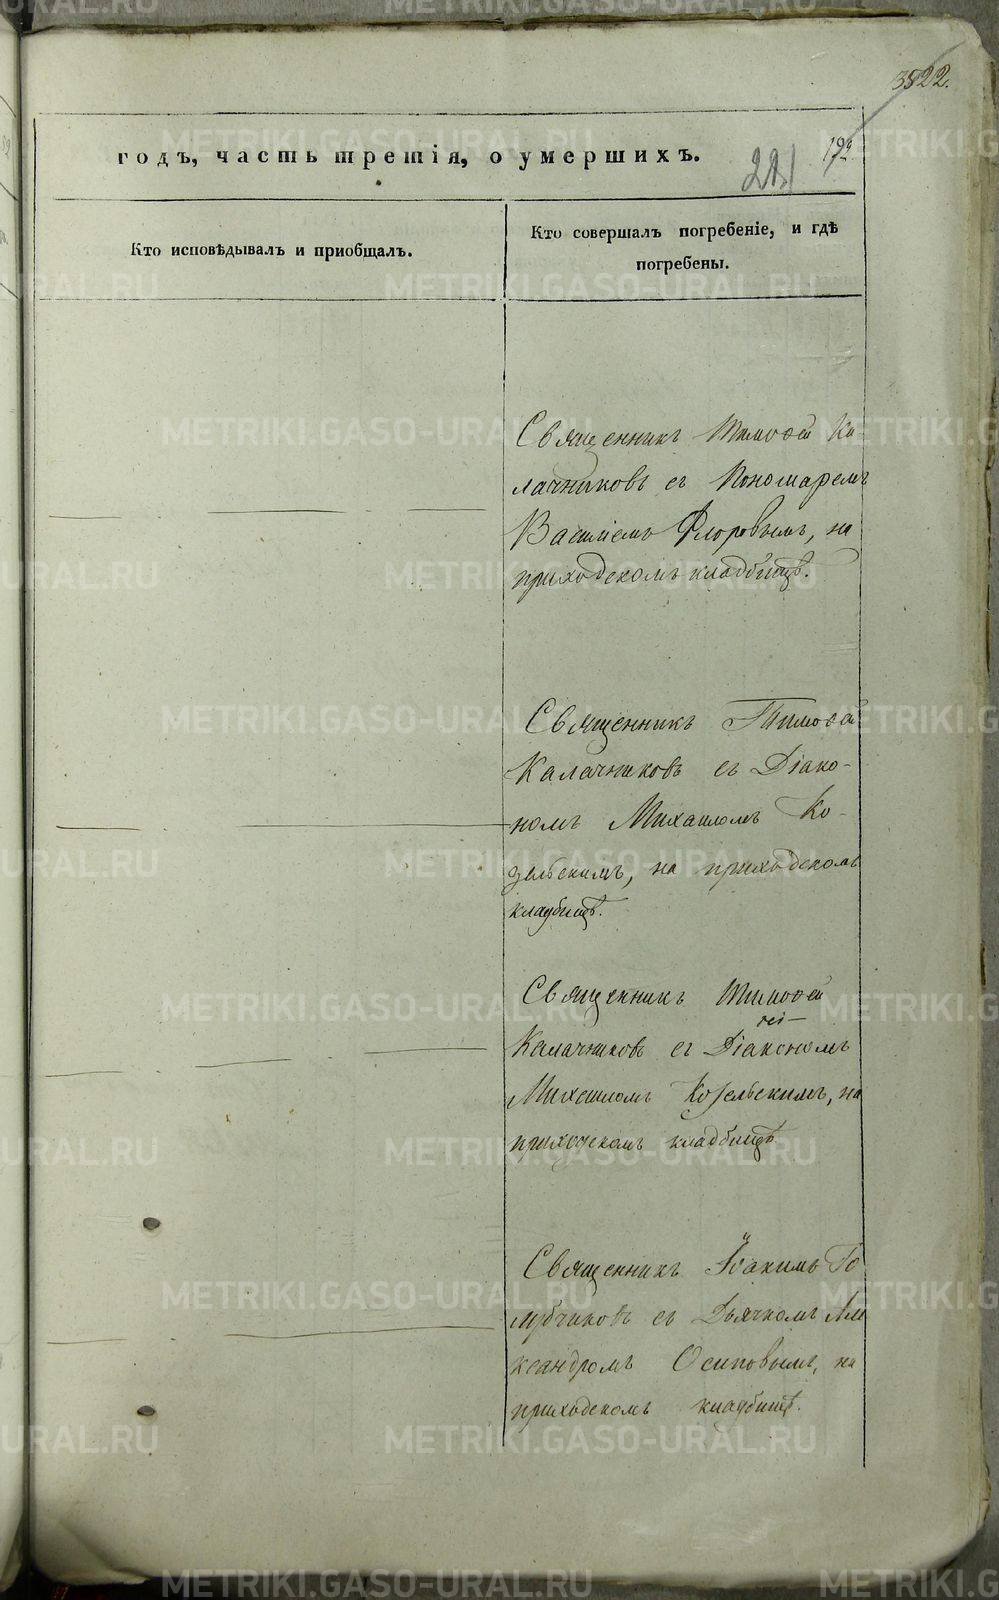 3522.
годъ, часть третія, о умершихъ.
221
192
Кто исповѣдывалъ и приобщалъ.
Кто совершалъ погребеніе, и гдѣ
погребены.
Священникъ Тимофей Ка-
лачниковъ съ Пономаремъ
Василіемъ Флоровымъ, на
приходскомъ кладбищѣ.
Священникъ Тимофей
Калачниковъ съ Діако-
номъ Михаиломъ Ко-
зельскимъ, на приходскомъ
кладбищѣ.
Священникъ Тимофей
Калачниковъ съ Діакономъ
Михаиломъ Козельскимъ, на
приходскомъ кладбищѣ
Священникъ Іоакимъ Го
лубчиковъ съ Дьячкомъ Але
ксандромъ Осиповымъ, на
приходскомъ кладбищѣ.
METRIKI.GASO-URAL.RU